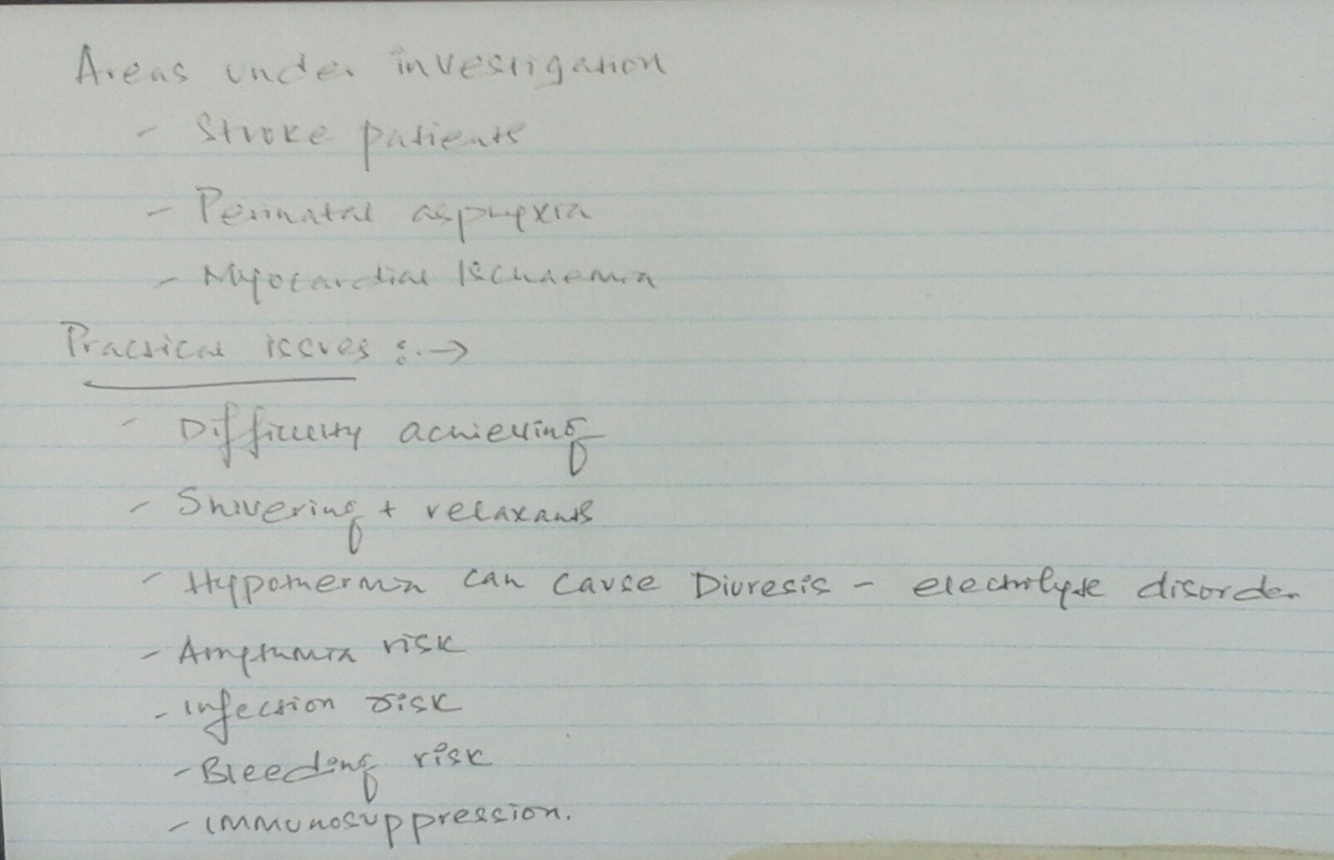 Areas under investigation
- Stroke patients
- Perinatal asphyxia
- Myocardial Ischaemia
Practical issues :->
- Difficulty achieving
- Shivering + relaxants
- Hypothermia can cause Diuresis - electrolyte disorder
- Arrythmia risk
- Infection risk
- Bleeding risk
- Immunosuppression.